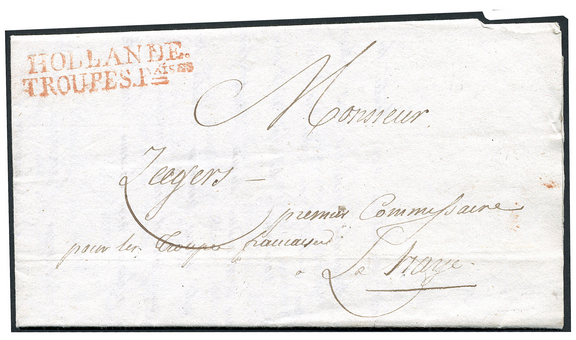 HOLLANDE.
TROUPES.F.aises
Monsieur
Zeegers —
premier Commissaire
pour les Troupes francaises
à La haye.